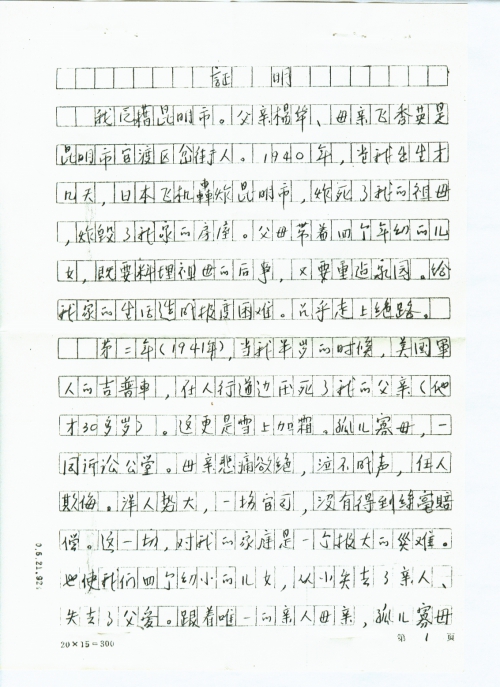 証 明
我原籍昆明市。父亲杨华、母亲飞香英是
昆明市官渡区岔街人。1940年,当我出生才
几天,日本飞机轰炸昆明市,炸死了我的祖母
,炸毁了我家的房屋。父母带着四个年幼的儿
女,既要料理祖母的后事,又要重造家园。给
我家的生活造成极度困难。几乎走上绝路。
第二年(1941年),当我半岁的时候,美国軍
人的吉普車,在人行道边压死了我的父亲(他
才30多岁)。这更是雪上加霜。孤儿寡母,一
同诉讼公堂。母亲悲痛欲绝,泣不成声,任人
欺侮。洋人势大,一场官司,没有得到絲毫賠
偿。这一切,对我的家庭是一个极大的災难。
也使我们四个幼小的儿女,从小失去了亲人、
失去了父爱。跟着唯一的亲人母亲,孤儿寡母
20×15=300
第 1 页